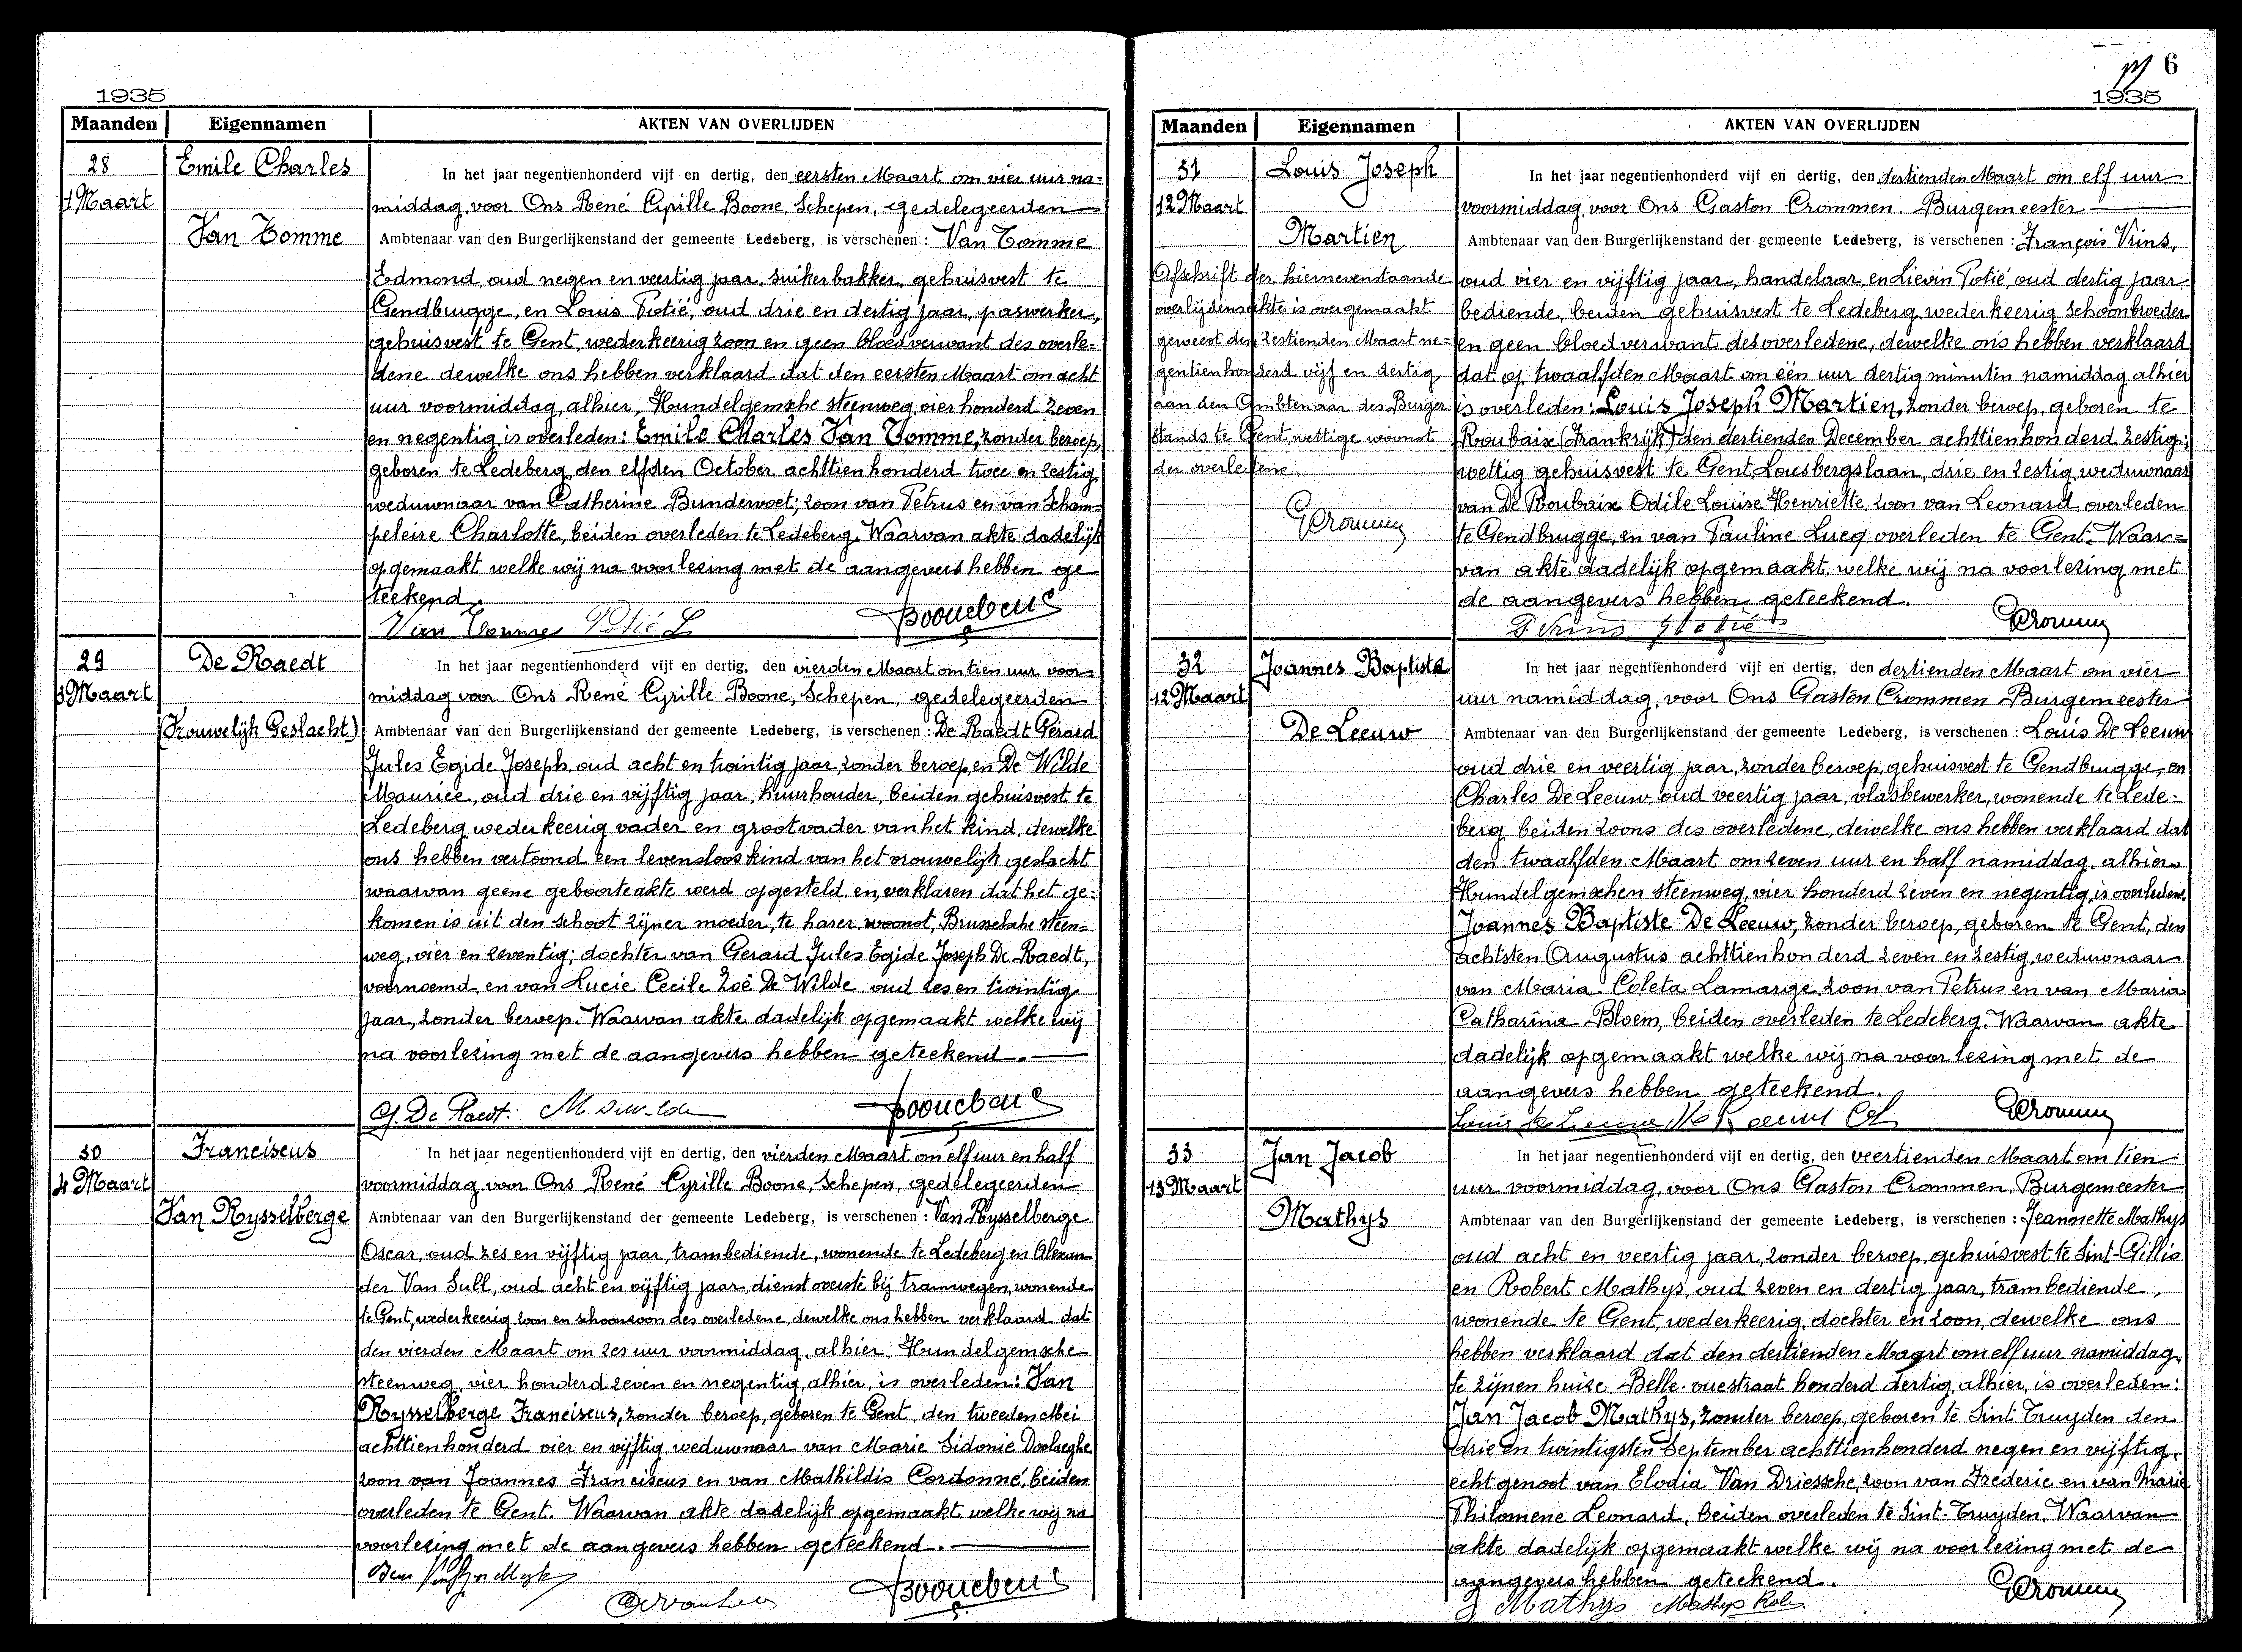 1935
Maanden Eigennamen AKTEN VAN OVERLIJDEN
28 Emile Charles
1 Maart
Van Tomme
In het jaar negentienhonderd vijf en dertig, den eersten Maart om vier uur na=
middag, voor Ons René Cyrille Boone, Schepen, gedelegeerden
Ambtenaar van den Burgerlijkenstand der gemeente Ledeberg, is verschenen : Van Tomme
Edmond, oud negen en veertig jaar, suikerbakker, gehuisvest te
Gendbrugge, en Louis Potié, oud drie en dertig jaar, paswerker,
gehuisvest te Gent, wederkeerig zoon en geen bloedverwant des overle=
dene dewelke ons hebben verklaard dat den eersten Maart om acht
uur voormiddag, alhier, Hundelgemsche steenweg vier honderd zeven
en negentig is overleden: Emile Charles Van Tomme, zonder beroep,
geboren te Ledeberg, den elfden October achttienhonderd twee en zestig,
weduwnaar van Catherine Bundervoet; zoon van Petrus en van Scham=
peleire Charlotte, beiden overleden te Ledeberg. Waarvan akte dadelijk
opgemaakt welke wij na voorlezing met de aangevers hebben ge
teekend.
Van Tomme Potié L
29 De Raedt
3 Maart
(Vrouwelijk Geslacht)
In het jaar negentienhonderd vijf en dertig, den vierden Maart om tien uur voor=
middag voor Ons René Cyrille Boone, Schepen, gedelegeerden
Ambtenaar van den Burgerlijkenstand der gemeente Ledeberg, is verschenen : De Raedt Gérard
Jules Egide Joseph, oud acht en twintig jaar, zonder beroep, en De Wilde
Maurice, oud drie en vijftig jaar, huurhouder, beiden gehuisvest te
Ledeberg wederkeerig vader en grootvader van het kind, dewelke
ons hebben vertoond een levensloos kind van het vrouwelijk geslacht
waarvan geene geboorteakte werd opgesteld en, verklaren dat het ge=
komen is uit den schoot zijner moeder, te harer woonst, Brusselsche steen=
weg, vier en zeventig; dochter van Gerard Jules Egide Joseph De Raedt,
voornoemd, en van Lucie Cecile Zoë De Wilde, oud zes en twintig
jaar, zonder beroep. Waarvan akte dadelijk opgemaakt welke wij
na voorlezing met de aangevers hebben geteekend.
G. De Raedt.
30 Franciscus
4 Maart
Van Rysselberge
In het jaar negentienhonderd vijf en dertig, den vierden Maart om elf uur en half
voormiddag, voor Ons René Cyrille Boone, Schepen, gedelegeerden
Ambtenaar van den Burgerlijkenstand der gemeente Ledeberg, is verschenen : Van Rysselberge
Oscar, oud zes en vijftig jaar, trambediende, wonende te Ledeberg en Alexan
der Van Sull, oud acht en vijftig jaar, dienstoverste bij tramwegen, wonende
te Gent, wederkeerig zoon en schoonzoon des overledene, dewelke ons hebben verklaard dat
den vierden Maart om zes uur voormiddag, alhier, Hundelgemsche
steenweg, vier honderd zeven en negentig, alhier, is overleden: Van
Rysselberge Franciscus, zonder beroep, geboren te Gent, den tweeden Mei
achttienhonderd vier en vijftig, weduwnaar van Marie Sidonie Doolaeghe
zoon van Joannes Franciscus en van Mathildis Cordonné, beiden
overleden te Gent. Waarvan akte dadelijk opgemaakt welke wij na
voorlezing met de aangevers hebben geteekend.
6
1935
Maanden Eigennamen AKTEN VAN OVERLIJDEN
31 Louis Joseph
12 Maart
Martien
Afschrift der hiernevenstaande
overlijdensakte is overgemaakt
geweest den zestienden Maart ne=
gentienhonderd vijf en dertig
aan den Ambtenaar des Burger=
stands te Gent, wettige woonst
der overledene.
In het jaar negentienhonderd vijf en dertig, den dertienden Maart om elf uur
voormiddag, voor Ons Gaston Crommen, Burgemeester
Ambtenaar van den Burgerlijkenstand der gemeente Ledeberg, is verschenen : François Vrins,
oud vier en vijftig jaar, handelaar, en Lievin Potié, oud dertig jaar
bediende, beiden gehuisvest te Ledeberg, wederkeerig schoonbroeder
en geen bloedverwant des overledene, dewelke ons hebben verklaard
dat op twaalfden Maart om één uur dertig minuten namiddag alhier
is overleden: Louis Joseph Martien, zonder beroep, geboren te
Roubaix (Frankrijk) den dertienden December achttienhonderd zestig;
wettig gehuisvest te Gent, Lousbergslaan, drie en zestig, weduwnaar
van De Roubaix Odile Louise Henriette zoon van Leonard overleden
te Gendbrugge, en van Pauline Lucq overleden te Gent. Waar=
van akte dadelijk opgemaakt welke wij na voorlezing met
de aangevers hebben geteekend.
32 Joannes Baptista
12 Maart
De Leeuw
In het jaar negentienhonderd vijf en dertig, den dertienden Maart om vier
uur namiddag, voor Ons Gaston Crommen Burgemeester
Ambtenaar van den Burgerlijkenstand der gemeente Ledeberg, is verschenen : Louis De Leeuw
oud drie en veertig jaar, zonder beroep, gehuisvest te Gendbrugge, en
Charles De Leeuw, oud veertig jaar, vlasbewerker, wonende te Lede=
berg beiden zoons des overledene, dewelke ons hebben verklaard dat
den twaalfden Maart om zeven uur en half namiddag, alhier
Hundelgemschen steenweg, vier honderd zeven en negentig, is overleden:
Joannes Baptiste De Leeuw, zonder beroep, geboren te Gent, den
achtsten Augustus achttienhonderd zeven en zestig, weduwnaar
van Maria Coleta Lamarge, zoon van Petrus en van Maria
Catharina Bloem, beiden overleden te Ledeberg. Waarvan akte
dadelijk opgemaakt welke wij na voorlezing met de
aangevers hebben geteekend.
33 Jan Jacob
13 Maart
Mathys
In het jaar negentienhonderd vijf en dertig, den veertienden Maart om tien
uur voormiddag, voor Ons Gaston Crommen, Burgemeester
Ambtenaar van den Burgerlijkenstand der gemeente Ledeberg, is verschenen : Jeannette Mathys
oud acht en veertig jaar, zonder beroep, gehuisvest te Sint-Gillis
en Robert Mathys, oud zeven en dertig jaar, trambediende,
wonende te Gent, wederkeerig, dochter en zoon, dewelke ons
hebben verklaard dat den dertienden Maart om elf uur namiddag,
te zijnen huize, Belle-vuestraat honderd dertig, alhier, is overleden:
Jan Jacob Mathys, zonder beroep, geboren te Sint Truyden den
drie en twintigsten September achttienhonderd negen en vijftig,
echtgenoot van Elodia Van Driessche, zoon van Fréderic en van Marie
Philomene Leonard, beiden overleden te Sint-Truyden. Waarvan
akte dadelijk opgemaakt welke wij na voorlezing met de
aangevers hebben geteekend.
J Mathys Mathys Rob.